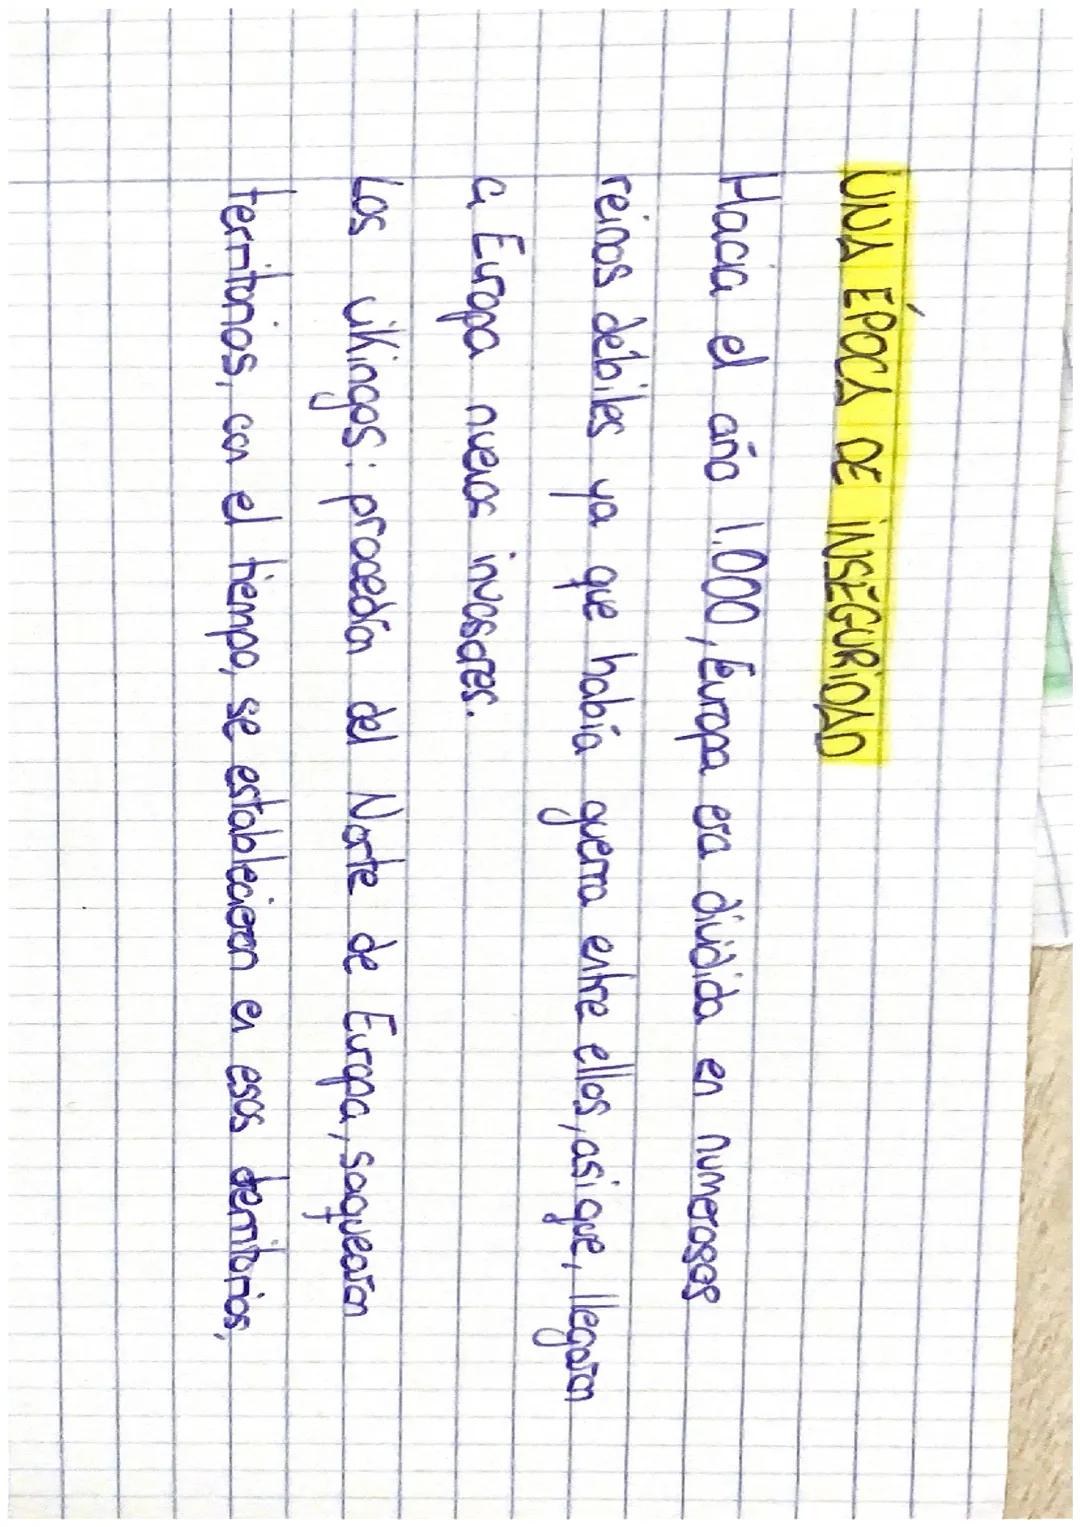 UNA ÉPOCA DE INSEGURIDAD
Hacia el año 1.000, Europa era dividida en numerosos
reinos débiles ya que había guerra entre ellos, asi que, llegaron
a Europa nuevos invasores.
Los vikingos: procedían del Norte de Europa, saquearon
territorios, con el tiempo, se establecieron en esos derritorios,